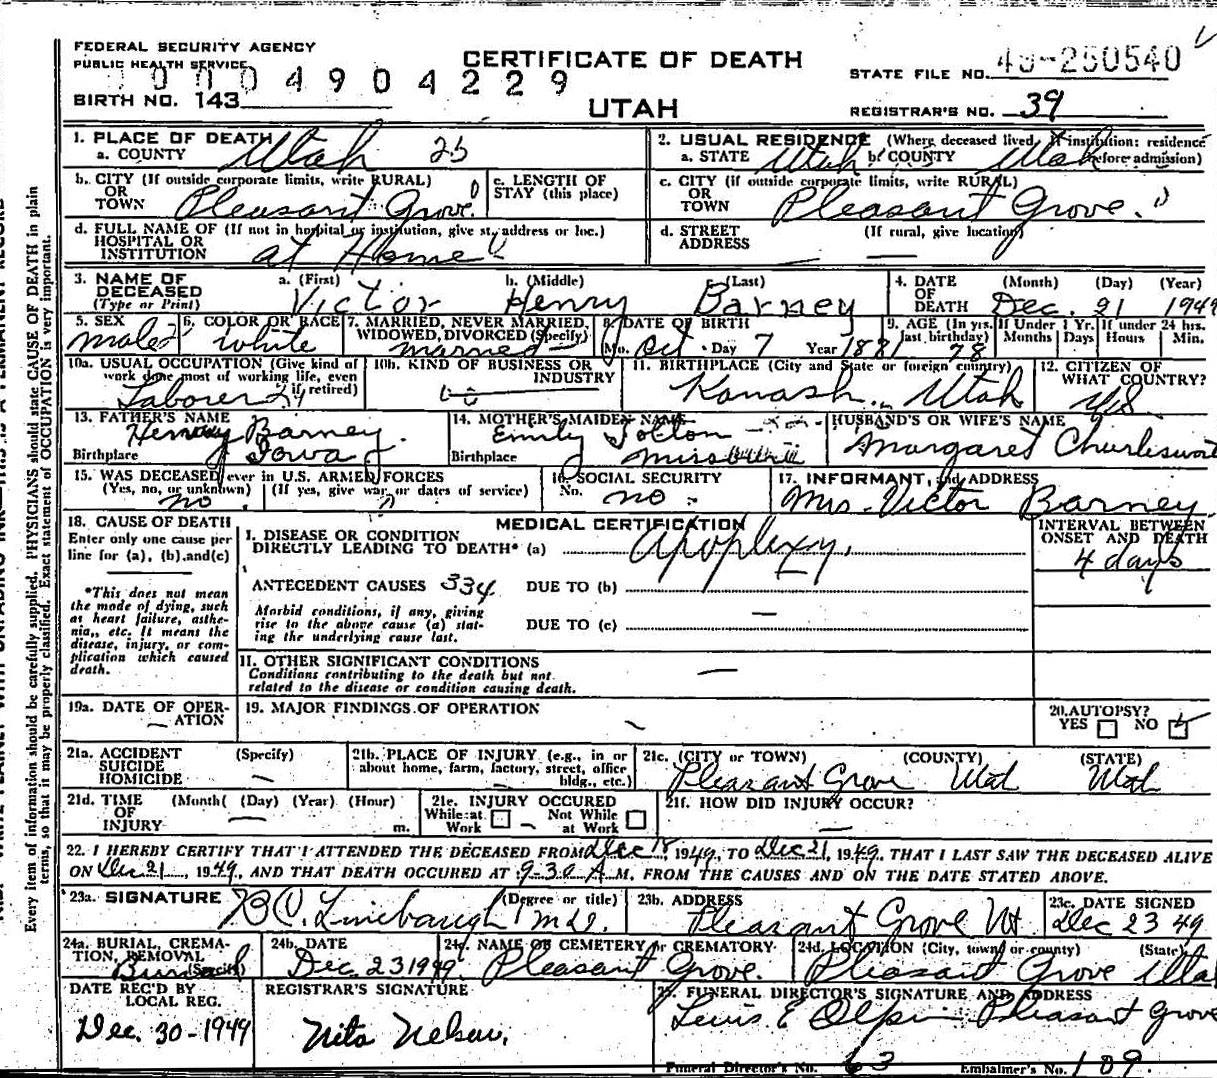 FEDERAL SECURITY AGENCY
PUBLIC HEALTH SERVICE
CERTIFICATE OF DEATH
STATE FILE NO. 49-250540
4904229
BIRTH NO. 143
UTAH
REGISTRAR'S NO. 39
1. PLACE OF DEATH
a. COUNTY Utah 25
2. USUAL RESIDENCE (Where deceased lived, If institution: residence before admission)
a. STATE Utah b. COUNTY Utah
b. CITY (If outside corporate limits, write RURAL)
OR TOWN Pleasant Grove
c. LENGTH OF STAY (this place)
c. CITY (if outside corporate limits, write RURAL)
OR TOWN Pleasant Grove.
d. FULL NAME OF (If not in hospital or institution, give st. address or loc.)
HOSPITAL OR INSTITUTION at Home
d. STREET ADDRESS (If rural, give location)
3. NAME OF DECEASED (Type or Print)
a. (First) b. (Middle) c. (Last)
Victor Henry Barney
4. DATE OF DEATH (Month) (Day) (Year)
Dec. 21 1949
5. SEX male
6. COLOR OR RACE white
7. MARRIED, NEVER MARRIED, WIDOWED, DIVORCED (Specify)
married
8. DATE OF BIRTH
Mo. Oct Day 7 Year 1871
9. AGE (In yrs. last birthday) 78
If Under 1 Yr. Months Days
If under 24 hrs. Hours Min.
10a. USUAL OCCUPATION (Give kind of work done most of working life, even if retired)
Laborer
10b. KIND OF BUSINESS OR INDUSTRY
11. BIRTHPLACE (City and State or foreign country)
Kanash, Utah
12. CITIZEN OF WHAT COUNTRY?
US
13. FATHER'S NAME
Henry Barney.
Birthplace Iowa
14. MOTHER'S MAIDEN NAME
Emily Tolton
Birthplace Missouri
HUSBAND'S OR WIFE'S NAME
Margaret Churlesworth
15. WAS DECEASED ever in U.S. ARMED FORCES
(Yes, no, or unknown) (If yes, give war or dates of service)
no.
16. SOCIAL SECURITY No. no.
17. INFORMANT, and ADDRESS
Mrs. Victor Barney.
18. CAUSE OF DEATH
Enter only one cause per line for (a), (b), and (c)
MEDICAL CERTIFICATION
INTERVAL BETWEEN ONSET AND DEATH
I. DISEASE OR CONDITION DIRECTLY LEADING TO DEATH* (a) apoplexy.
4 days
*This does not mean the mode of dying, such as heart failure, asthenia,, etc. It means the disease, injury, or complication which caused death.
ANTECEDENT CAUSES 334 DUE TO (b)
Morbid conditions, if any, giving rise to the above cause (a) stating the underlying cause last.
DUE TO (c)
II. OTHER SIGNIFICANT CONDITIONS
Conditions contributing to the death but not related to the disease or condition causing death.
19a. DATE OF OPERATION
19. MAJOR FINDINGS OF OPERATION
20. AUTOPSY? YES NO
21a. ACCIDENT SUICIDE HOMICIDE (Specify)
21b. PLACE OF INJURY (e.g., in or about home, farm, factory, street, office bldg., etc.)
21c. (CITY or TOWN) (COUNTY) (STATE)
Pleasant Grove Utah Utah
21d. TIME OF INJURY (Month( (Day) (Year) (Hour) m.
21e. INJURY OCCURED
While at Work Not While at Work
21f. HOW DID INJURY OCCUR?
22. I HEREBY CERTIFY THAT I ATTENDED THE DECEASED FROM Dec 18, 1949, TO Dec 21, 1949, THAT I LAST SAW THE DECEASED ALIVE
ON Dec 21, 1949, AND THAT DEATH OCCURED AT 9-30 A M. FROM THE CAUSES AND ON THE DATE STATED ABOVE.
23a. SIGNATURE (Degree or title)
B.O. Linebaugh MD.
23b. ADDRESS
Pleasant Grove Ut
23c. DATE SIGNED
Dec 23 49
24a. BURIAL, CREMATION, REMOVAL (Specify)
Burial
24b. DATE
Dec. 23 1949
24c. NAME OF CEMETERY or CREMATORY
Pleasant Grove.
24d. LOCATION (City, town, or county) (State)
Pleasant Grove Utah
DATE REC'D BY LOCAL REG.
Dec. 30-1949
REGISTRAR'S SIGNATURE
Nita Nelson.
25. FUNERAL DIRECTOR'S SIGNATURE AND ADDRESS
Lewis E Olpin Pleasant Grove
Funeral Director's No. 63 Embalmer's No. 109.
Every item of information should be carefully supplied. PHYSICIANS should state CAUSE OF DEATH in plain
terms, so that it may be properly classified. Exact statement of OCCUPATION is very important.